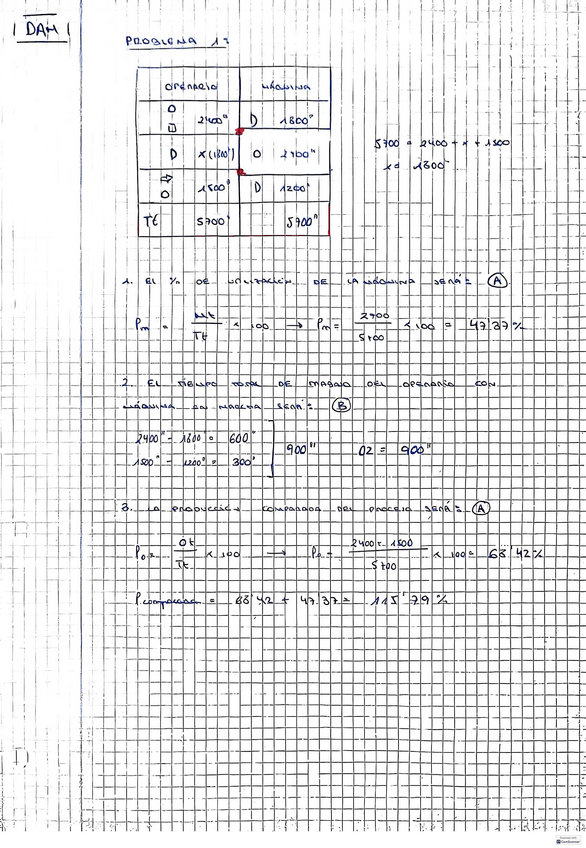 DAH
PROBLEMA 1:
OPERARIO MÁQUINA
2400" D 1800"
D x(1800") O 2700"
1500" D 1200"
Tt 5700" 5700"
5700 = 2400 + x + 1500
x = 1800"
1. EL % DE UTILIZACIÓN DE LA MÁQUINA SERÁ: A
Pm = Mt / Tt × 100 → Pm = 2700 / 5700 × 100 = 47'37%
2. EL TIEMPO TOTAL DE TRABAJO DEL OPERARIO CON
MÁQUINA EN MARCHA SERÁ: B
2400" - 1800" = 600"
1500" - 1200" = 300"
900" O2 = 900"
3. LA PRODUCCIÓN COMPARADA DEL PROCESO SERÁ: A
Po = Ot / Tt × 100 → Po = 2400 + 1500 / 5700 × 100 = 68'42%
P comparada = 68'42 + 47'37 = 115'79%